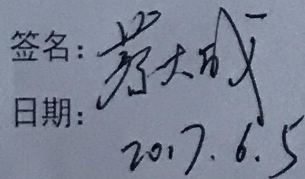 签名：蔡大成
日期：2017.6.5